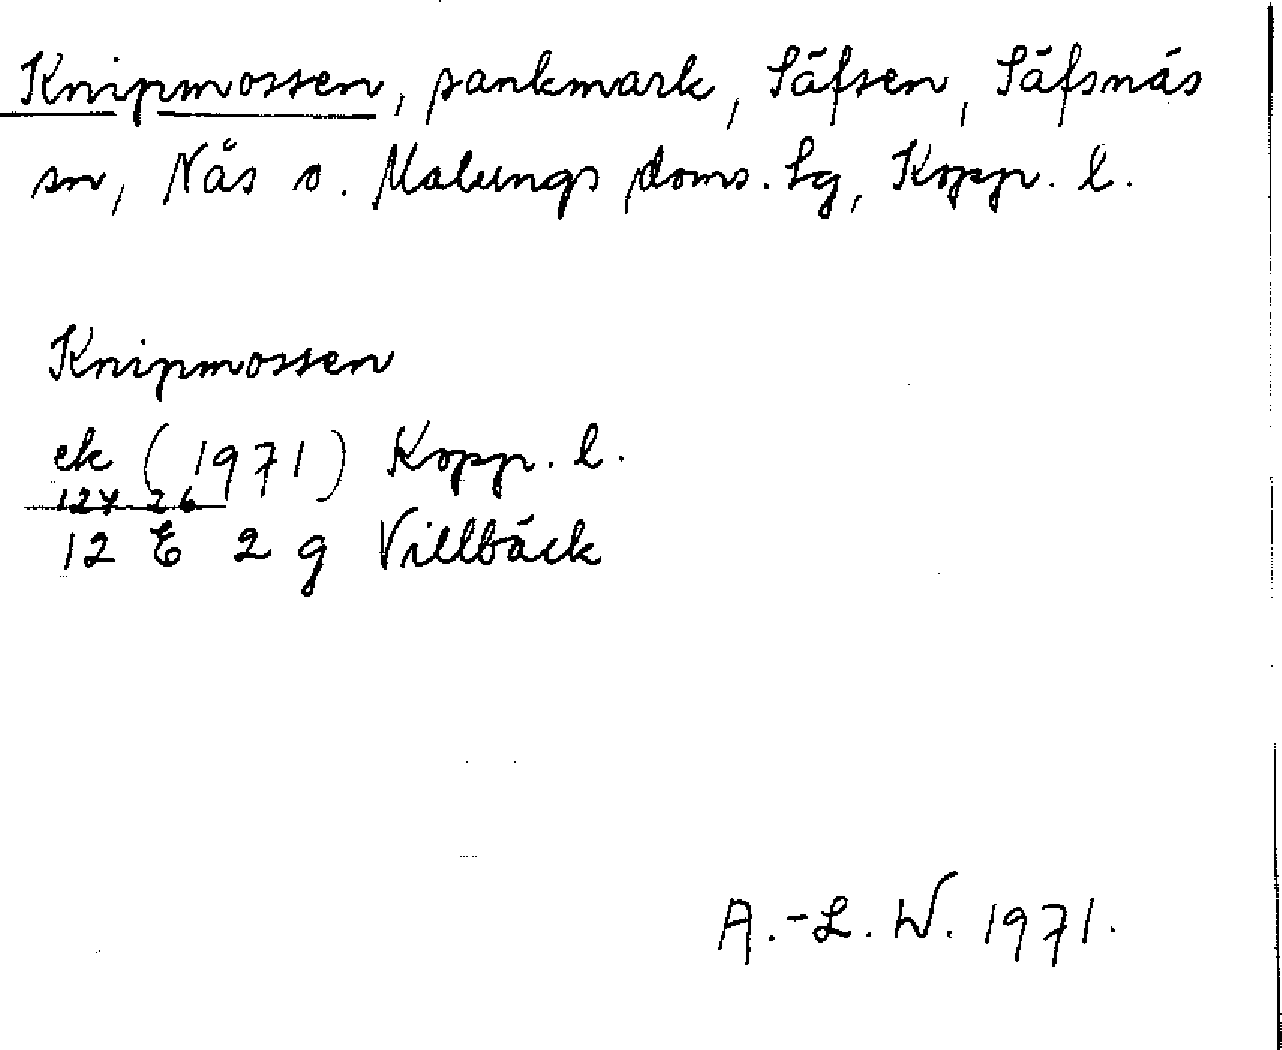 Knipmossen, sankmark, Säfsen, Säfsnäs
sn, Nås o. Malungs doms. lg, Kopp. l.
Knipmossen
ek (1971) Kopp. l.
124 26
12 E 2 g Villbäck
A.-L. W. 1971.